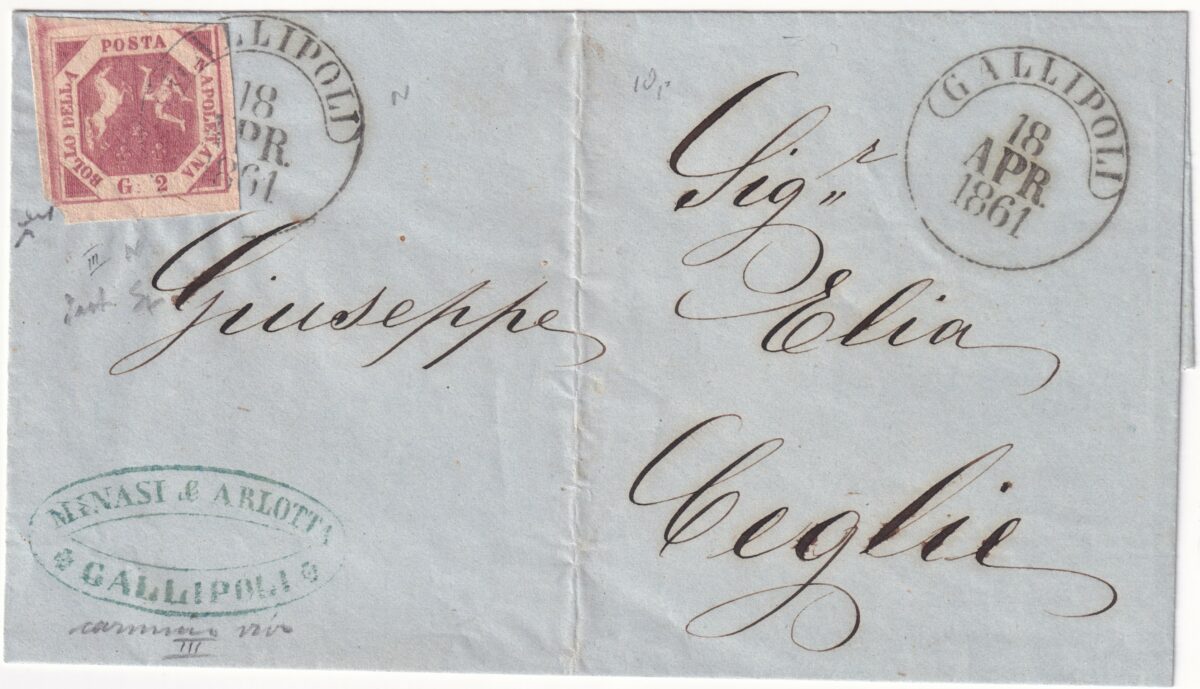 BOLLO DELLA
POSTA
NAPOLETANA
G. 2
GALLIPOLI
18
APR.
1861
GALLIPOLI
18
APR.
1861
N
Sig.r
Giuseppe Elia
Ceglie
III N
MINASI & ARLOTTA
GALLIPOLI
carminio vivo
III